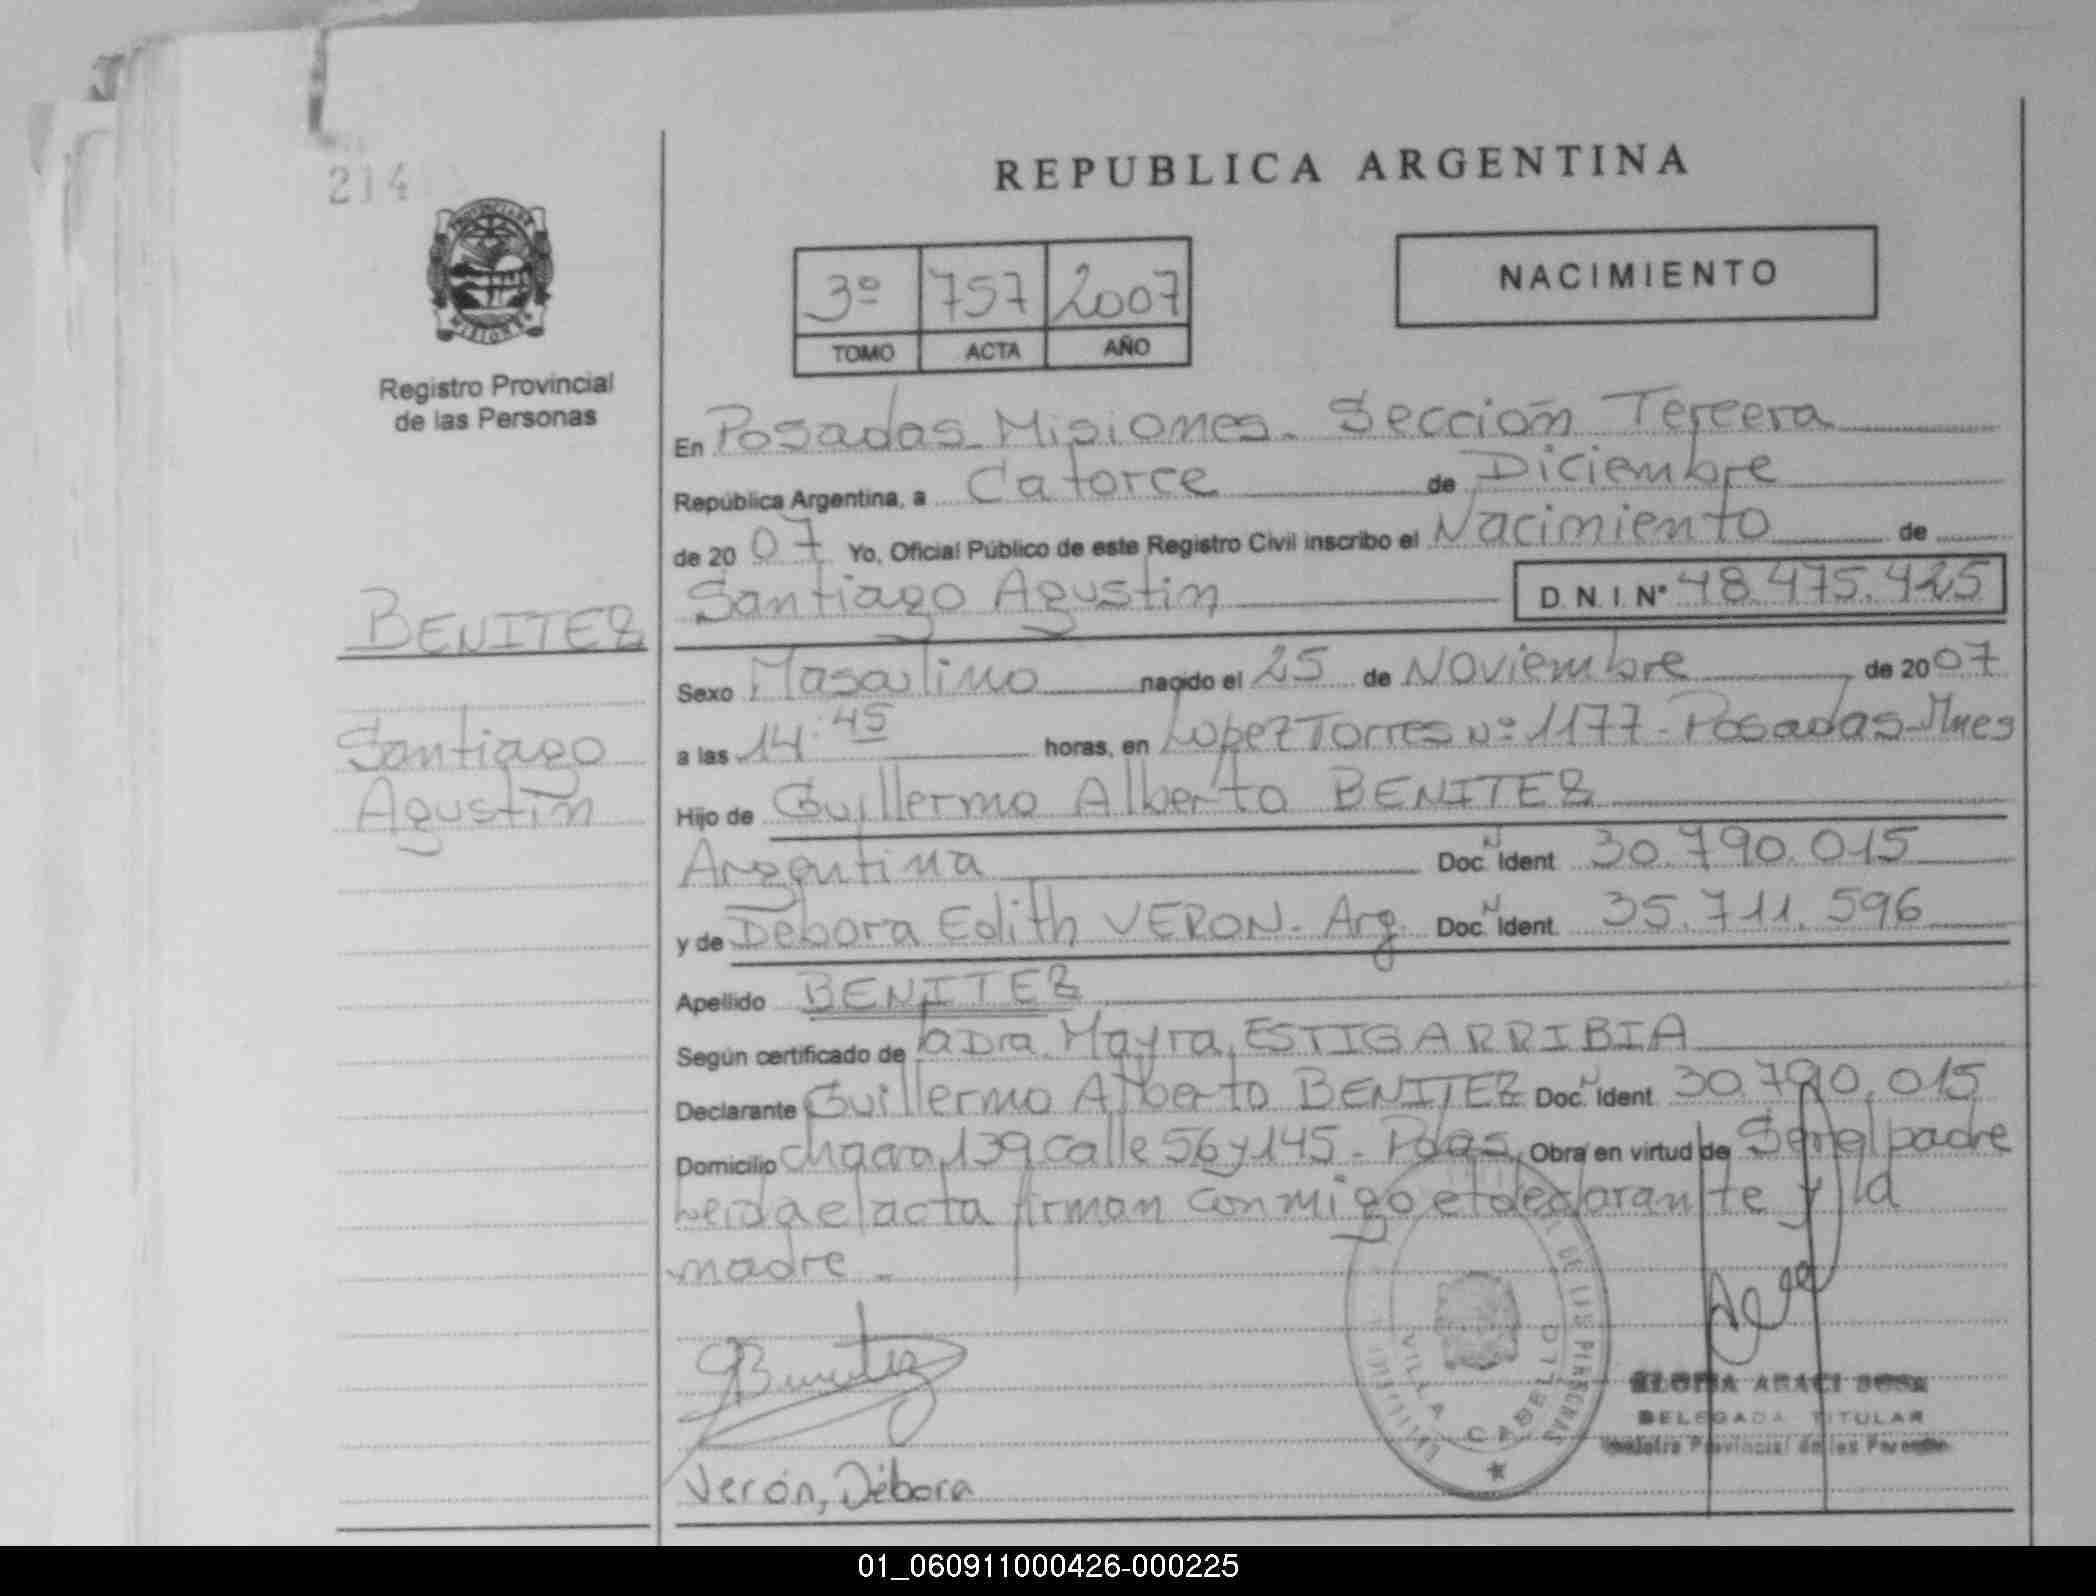 214
REPUBLICA ARGENTINA
PROVINCIA DE
MISIONES
Registro Provincial
de las Personas
3º 757 2007
TOMO ACTA AÑO
NACIMIENTO
En Posadas Misiones. Sección Tercera
República Argentina, a Catorce de Diciembre
de 20 07 Yo, Oficial Público de este Registro Civil inscribo el Nacimiento de
BENITEZ
Santiago Agustín D.N.I. Nº 48.475.425
Sexo Masculino nacido el 25 de Noviembre de 2007
Santiago
Agustín
a las 14:45 horas, en Lopez Torres Nº 1177 - Posadas - Mnes
Hijo de Guillermo Alberto BENITEZ
Argentina Doc. Nº Ident 30.790.015
y de Débora Edith VERON - Arg. Doc. Nº Ident. 35.711.596
Apellido BENITEZ
Según certificado de la Dra. Mayra ESTIGARRIBIA
Declarante Guillermo Alberto BENITEZ Doc. Nº Ident 30.790.015
Domicilio chacra 139 calle 56 y 145 - Pdas Obra en virtud de Ser el padre
leida el acta firman conmigo el declarante y la
madre -
GBenitez
Verón, Débora
DE LAS PERSONAS
VILLA CABELLO
ARACI SOSA
DELEGADA TITULAR
Registro Provincial de las Personas
01_060911000426-000225